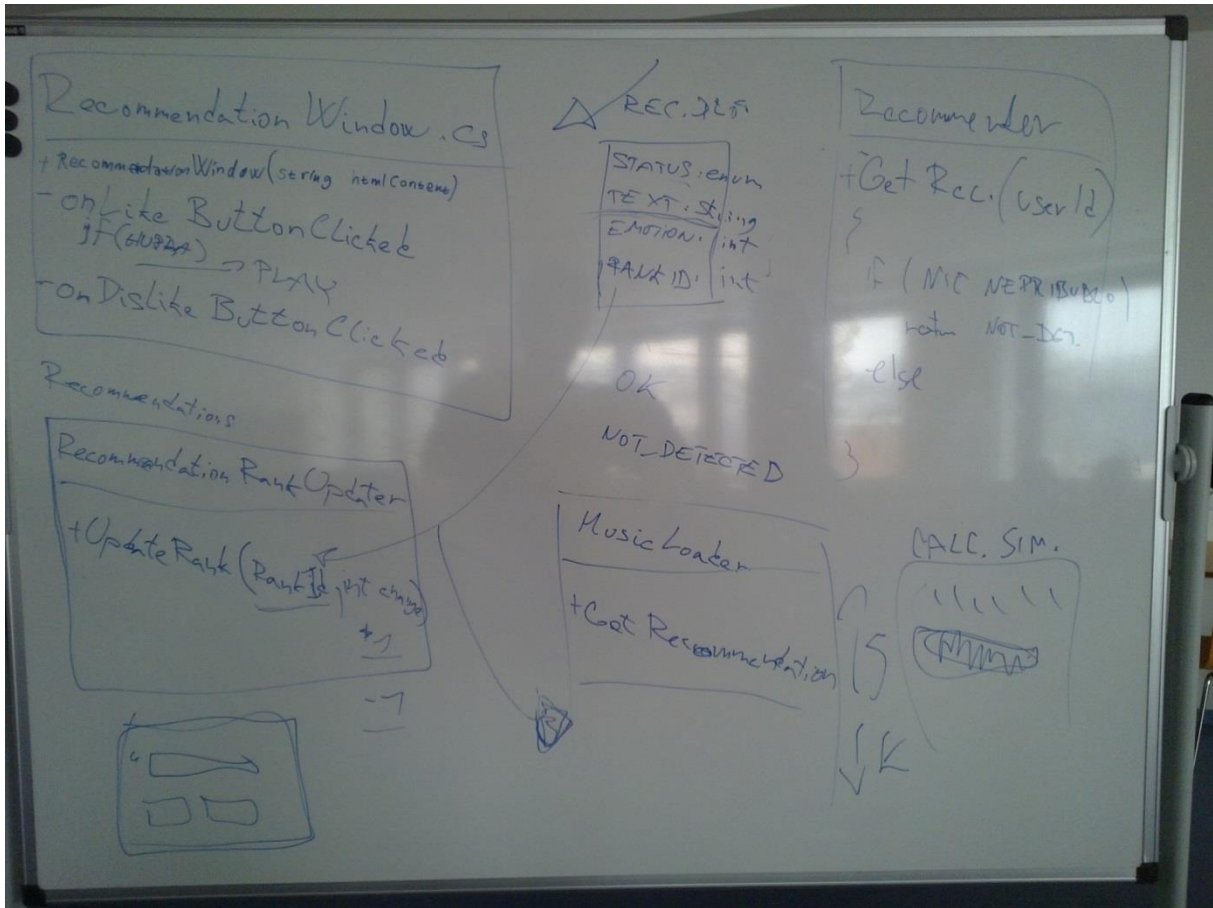 Recommendation Window.cs
+ RecommendationWindow(string htmlContent)
- onLike ButtonClicked
if(HUDBA)
PLAY
- onDislike ButtonClicked
Recommendations
Recommendation RankUpdater
+UpdateRank(RankId, int change)
+1
-1
REC.
STATUS: enum
TEXT: string
EMOTION: int
RANK ID: int
OK
NOT_DETECTED
MusicLoader
+Get Recommendation
Recommender
+Get Rec. (userId)
{
if (NIC NEPRIBUDLO)
return NOT_DET.
else
}
CALC. SIM.
K